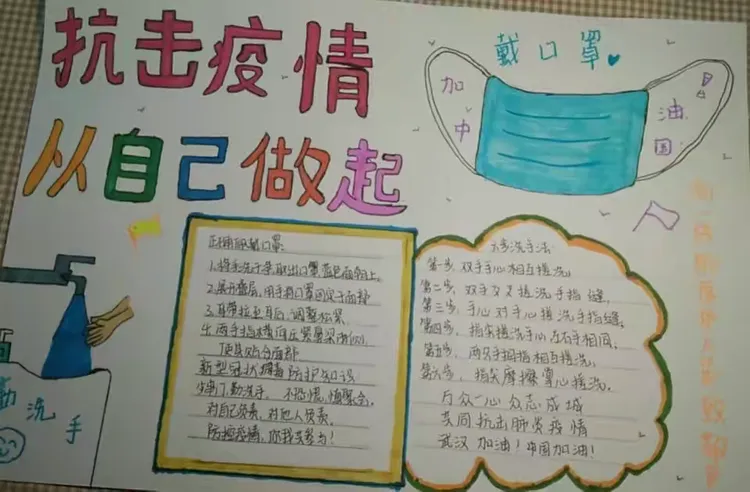 抗击疫情
从自己做起
戴口罩
加 油
中 国
正确佩戴口罩:
1.将手洗干净取出口罩蓝色面朝上。
2.展开叠层,用手将口罩固定于面部
3.耳带拉至耳后,调整松紧
4.两手指横向压紧鼻梁
使其贴合面部
新型冠状病毒防护知识
少串门,勤洗手,不恐慌,慎聚会。
对自己负责,对他人负责,
防控疫情,你我共参与!
六步洗手法
第一步,双手手心相互搓洗,
第二步,双手交叉搓洗手指缝,
第三步,手心对手心搓洗手指缝,
第四步,指尖搓洗手心左右手相同,
第五步,两只手拇指相互搓洗,
第六步,指尖摩擦掌心搓洗。
万众一心众志成城
共同抗击肺炎疫情
武汉加油!中国加油!
勤洗手
致敬